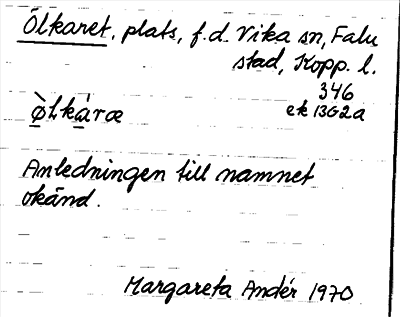 Ölkaret, plats, f.d. Vika sn, Falu
stad, Kopp. l.
346
ek 13G2a
ø̀lkáræ
Anledningen till namnet
okänd.
Margareta Andér 1970